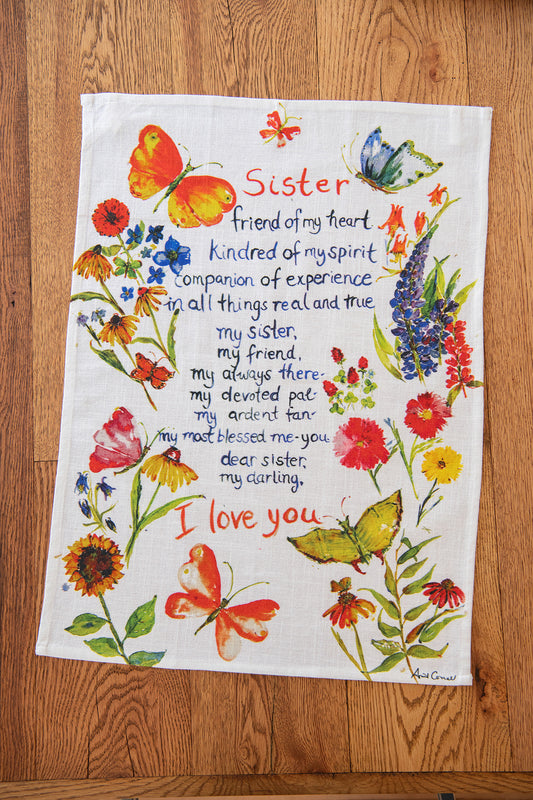 Sister
friend of my heart
kindred of my spirit
companion of experience
in all things real and true
my sister,
my friend,
my always there-
my devoted pal-
my ardent fan-
my most blessed me-you
dear sister,
my darling,
I love you